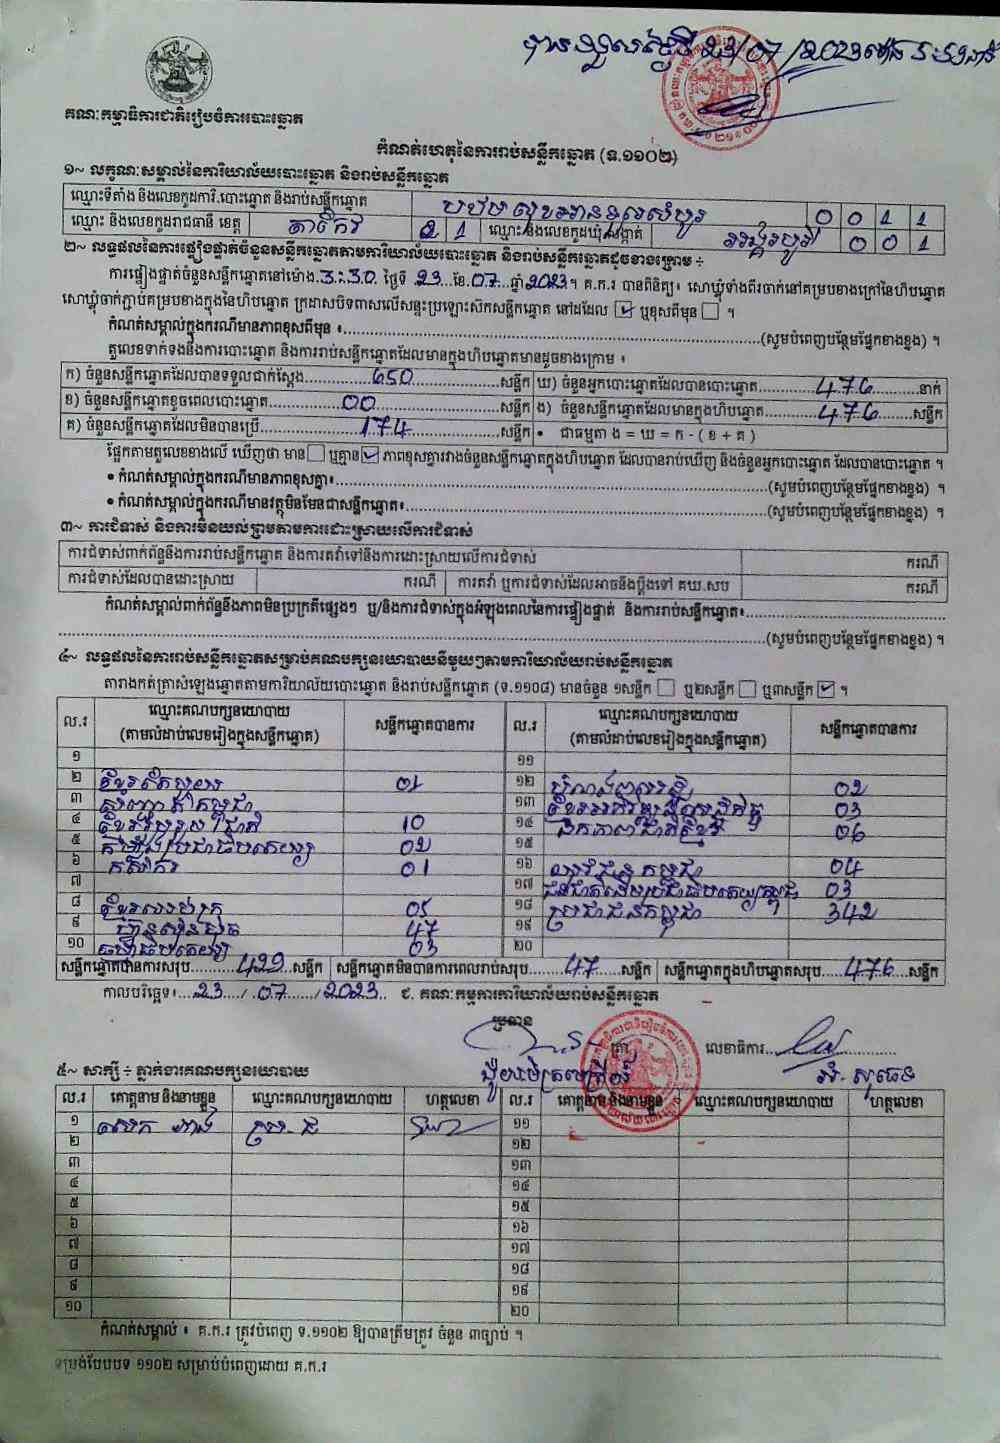 បានទទួលថ្ងៃទី 23/07/2023
គណៈកម្មាធិការជាតិរៀបចំការបោះឆ្នោត
កំណត់ហេតុនៃការរាប់សន្លឹកឆ្នោត (ទ.១១០២)
១~ លក្ខណៈសម្គាល់នៃការិយាល័យបោះឆ្នោត និងរាប់សន្លឹកឆ្នោត
ឈ្មោះទីតាំង និងលេខកូដការិ.បោះឆ្នោត និងរាប់សន្លឹកឆ្នោត 0 0 1 1
ឈ្មោះ និងលេខកូដរាជធានី ខេត្ត តាកែវ 2 1 ឈ្មោះ និងលេខកូដឃុំ សង្កាត់ អង្គរបូរី 0 0 1
២~ លទ្ធផលនៃការផ្ទៀងផ្ទាត់ចំនួនសន្លឹកឆ្នោតតាមការិយាល័យបោះឆ្នោត និងរាប់សន្លឹកឆ្នោតដូចខាងក្រោម ៖
ការផ្ទៀងផ្ទាត់ចំនួនសន្លឹកឆ្នោតនៅម៉ោង 3:30 ថ្ងៃទី 23 ខែ 07 ឆ្នាំ 2023 ។ គ.ក.រ បានពិនិត្យ៖ សោឃ្លុំទាំងពីរចាក់នៅគម្របខាងក្រៅនៃហិបឆ្នោត
សោឃ្លុំចាក់ភ្ជាប់គម្របខាងក្នុងនៃហិបឆ្នោត ក្រដាសបិទពាសលើសន្ទះប្រឡោះសិកសន្លឹកឆ្នោត នៅដដែល ☑ ឬខុសពីមុន ☐ ។
កំណត់សម្គាល់ក្នុងករណីមានភាពខុសពីមុន ៖ (សូមបំពេញបន្ថែមផ្នែកខាងខ្នង) ។
តួលេខទាក់ទងនឹងការបោះឆ្នោត និងការរាប់សន្លឹកឆ្នោតដែលមានក្នុងហិបឆ្នោតមានដូចខាងក្រោម ៖
ក) ចំនួនសន្លឹកឆ្នោតដែលបានទទួលជាក់ស្តែង 650 សន្លឹក ឃ) ចំនួនអ្នកបោះឆ្នោតដែលបានបោះឆ្នោត 476 នាក់
ខ) ចំនួនសន្លឹកឆ្នោតខូចពេលបោះឆ្នោត 00 សន្លឹក ង) ចំនួនសន្លឹកឆ្នោតដែលមានក្នុងហិបឆ្នោត 476 សន្លឹក
គ) ចំនួនសន្លឹកឆ្នោតដែលមិនបានប្រើ 174 សន្លឹក • ជាធម្មតា ង = ឃ = ក - ( ខ + គ )
ផ្អែកតាមតួលេខខាងលើ ឃើញថា មាន ☐ ឬគ្មាន ☑ ភាពខុសគ្នារវាងចំនួនសន្លឹកឆ្នោតក្នុងហិបឆ្នោត ដែលបានរាប់ឃើញ និងចំនួនអ្នកបោះឆ្នោត ដែលបានបោះឆ្នោត ។
• កំណត់សម្គាល់ក្នុងករណីមានភាពខុសគ្នា៖ (សូមបំពេញបន្ថែមផ្នែកខាងខ្នង) ។
• កំណត់សម្គាល់ក្នុងករណីមានវត្ថុមិនមែនជាសន្លឹកឆ្នោត៖ (សូមបំពេញបន្ថែមផ្នែកខាងខ្នង) ។
៣~ ការជំទាស់ និងការមិនយល់ព្រមតាមការដោះស្រាយលើការជំទាស់
ការជំទាស់ពាក់ព័ន្ធនឹងការរាប់សន្លឹកឆ្នោត និងការតវ៉ាទៅនឹងការដោះស្រាយលើការជំទាស់ ករណី
ការជំទាស់ដែលបានដោះស្រាយ ករណី ការតវ៉ា ឬការជំទាស់ដែលអាចនឹងប្តឹងទៅ គឃ.សប ករណី
កំណត់សម្គាល់ពាក់ព័ន្ធនឹងភាពមិនប្រក្រតីផ្សេងៗ ឬ/និងការជំទាស់ក្នុងអំឡុងពេលនៃការផ្ទៀងផ្ទាត់ និងការរាប់សន្លឹកឆ្នោត៖
(សូមបំពេញបន្ថែមផ្នែកខាងខ្នង) ។
៤~ លទ្ធផលនៃការរាប់សន្លឹកឆ្នោតសម្រាប់គណបក្សនយោបាយនីមួយៗតាមការិយាល័យរាប់សន្លឹកឆ្នោត
តារាងកត់ត្រាសំឡេងឆ្នោតតាមការិយាល័យបោះឆ្នោត និងរាប់សន្លឹកឆ្នោត (ទ.១១០៨) មានចំនួន ១សន្លឹក ☐ ឬ២សន្លឹក ☐ ឬ៣សន្លឹក ☑ ។
ល.រ ឈ្មោះគណបក្សនយោបាយ សន្លឹកឆ្នោតបានការ ល.រ ឈ្មោះគណបក្សនយោបាយ សន្លឹកឆ្នោតបានការ
(តាមលំដាប់លេខរៀងក្នុងសន្លឹកឆ្នោត) (តាមលំដាប់លេខរៀងក្នុងសន្លឹកឆ្នោត)
១ ១១
២ 01 ១២ 02
៣ ១៣ 03
៤ 10 ១៤ ឯកភាពជាតិខ្មែរ 06
៥ កម្លាំងប្រជាធិបតេយ្យ 02 ១៥
៦ កសិករ 01 ១៦ 04
៧ ១៧ 03
៨ 05 ១៨ ប្រជាជនកម្ពុជា 342
៩ ហ៊្វុនស៊ិនប៉ិច 47 ១៩
១០ ធម្មាធិបតេយ្យ 03 ២០
សន្លឹកឆ្នោតបានការសរុប 429 សន្លឹក សន្លឹកឆ្នោតមិនបានការពេលរាប់សរុប 47 សន្លឹក សន្លឹកឆ្នោតក្នុងហិបឆ្នោតសរុប 476 សន្លឹក
កាលបរិច្ឆេទ៖ 23 / 07 / 2023 ជ. គណៈកម្មការការិយាល័យរាប់សន្លឹកឆ្នោត
ប្រធាន
ត្រា លេខាធិការ
៥~ សាក្សី ÷ ភ្នាក់ងារគណបក្សនយោបាយ
ល.រ គោត្តនាម និងនាមខ្លួន ឈ្មោះគណបក្សនយោបាយ ហត្ថលេខា ល.រ គោត្តនាម និងនាមខ្លួន ឈ្មោះគណបក្សនយោបាយ ហត្ថលេខា
១ ១១
២ ១២
៣ ១៣
៤ ១៤
៥ ១៥
៦ ១៦
៧ ១៧
៨ ១៨
៩ ១៩
១០ ២០
កំណត់សម្គាល់ ៖ គ.ក.រ ត្រូវបំពេញ ទ.១១០២ ឱ្យបានត្រឹមត្រូវ ចំនួន ៣ច្បាប់ ។
ទម្រង់បែបបទ ១១០២ សម្រាប់បំពេញដោយ គ.ក.រ